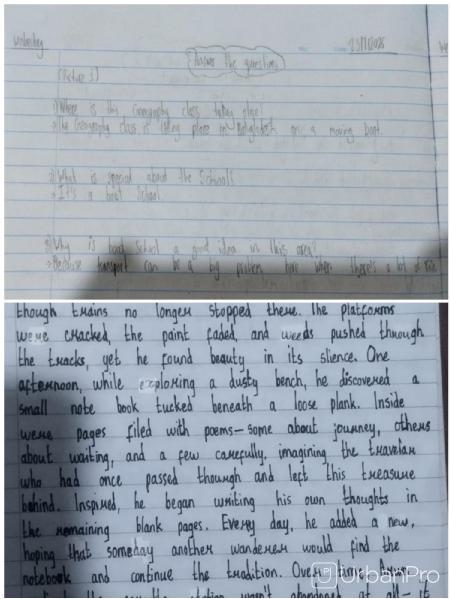 Wednesday
Answer the questions
(Picture 3)
1) Where is this Geography class taking place?
The Geography class is taking place in Bangladesh on a moving boat.
2) What is special about the School?
It's a boat School
3) Why is boat school a good idea in this area?
Because transport can be a big problem here when there's a lot of
though trains no longer stopped there. The platforms
were cracked, the paint faded, and weeds pushed through
the tracks, yet he found beauty in its slience. One
afternoon, while exploring a dusty bench, he discovered a
small note book tucked beneath a loose plank. Inside
were pages filled with poems—some about journey, others
about waiting, and a few carefully, imagining the travelar
who had once passed though and left this treasure
behind. Inspired, he began writing his own thoughts in
the remaining blank pages. Every day, he added a new,
hoping that someday another wanderer would find the
notebook and continue the tradition. Over time
the station wasn't abandoned at all—it
UrbanPro